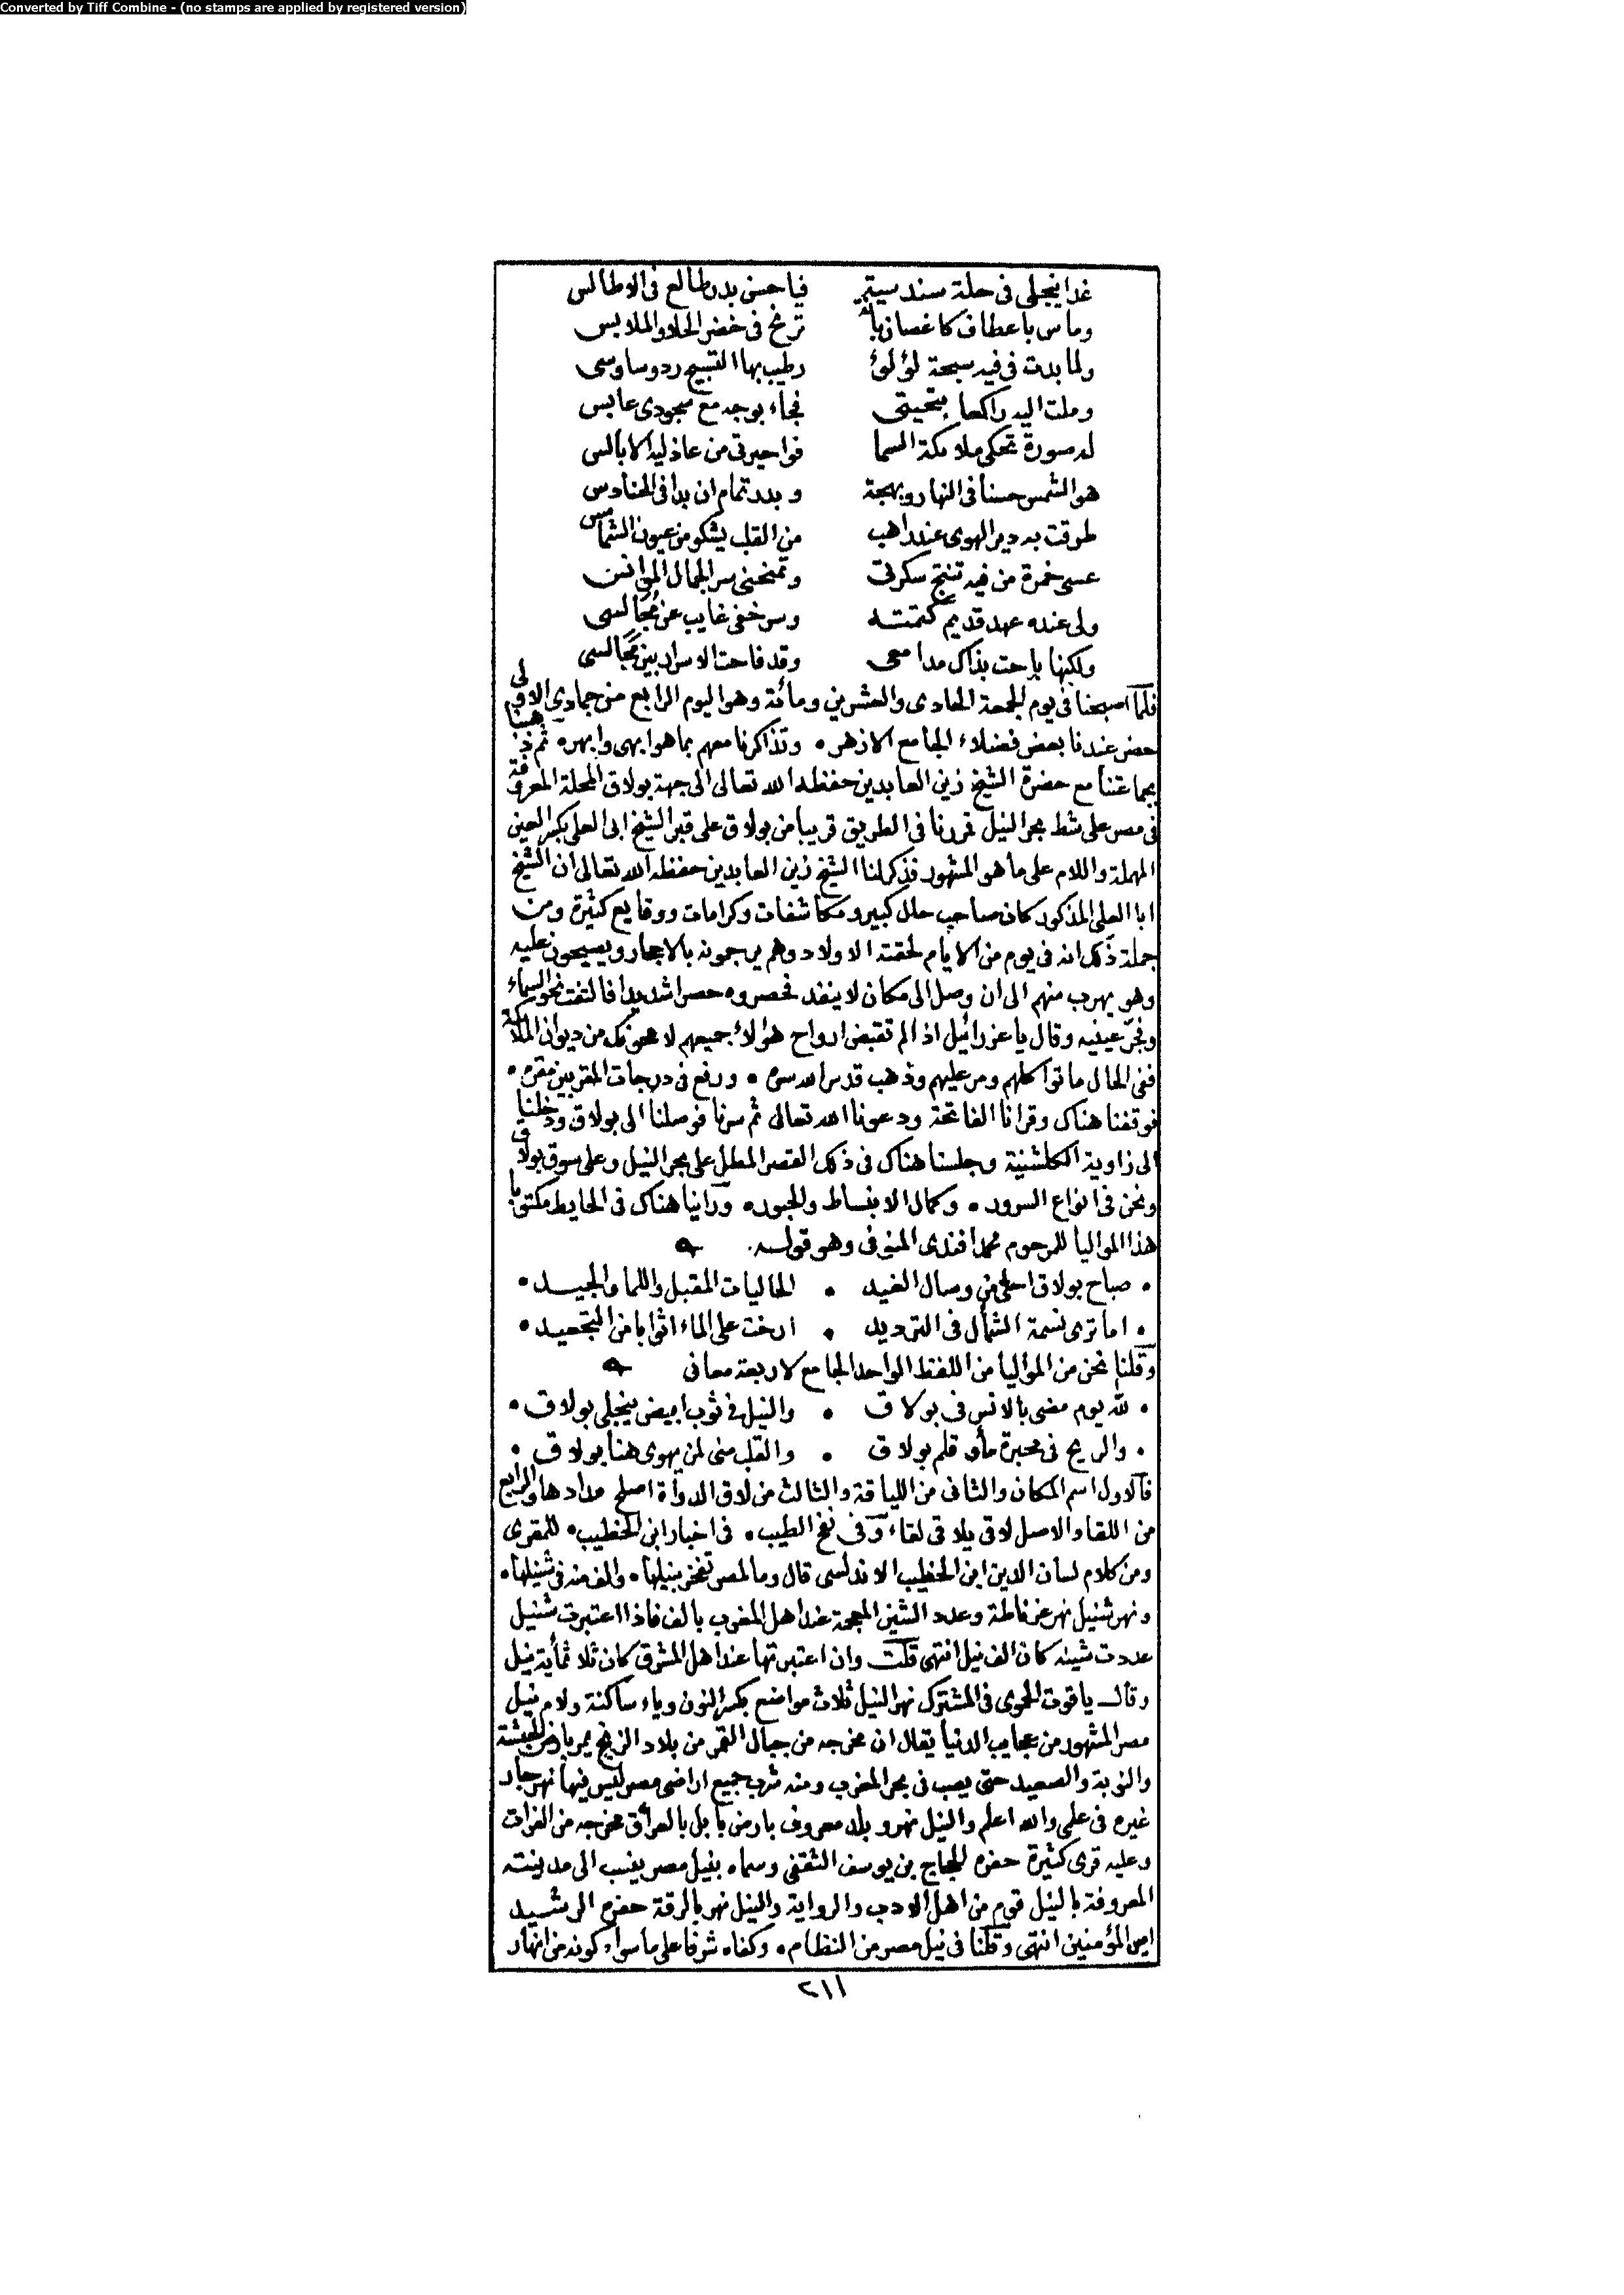 Converted by Tiff Combine - (no stamps are applied by registered version)
غدا ينجلى فى حلة سندسية فيا حسن بدر طالع فى الاطالس
وماس باعطاف كاغصان بانة ترنح فى خضر الحلا والملابس
ولما بدت فى فيه سبحة لؤلؤ رطيب بها التسبيح ردو ساوسى
وملت اليه راكعا بتحيتى فجاء بوجه مع سجودى عابس
له صورة تحكى ملائكة السما فواحيرتى من عاذليه الابالس
هو الشمس حسنا فى النهار وبهجة وبدر تمام ان بدا فى الحنادس
طرقت به دير الهوى عند راهب من القلب يشكو من عيون الشمامس
عسى خمرة من فيه تنتج سكرتى وتمنحنى سر الجمال المؤانس
ولى عنده عهد قديم كتمته وسر خفى غايب عن مجالسى
ولكنها باحت بذاك مدامعى وقد فاحت الاسرار بين مجالسى
فلما اصبحنا فى يوم الجمعة الحادى والعشرين ومائة وهو اليوم الرابع من جمادى الاولى
حضر عندنا بعض فضلاء الجامع الازهر • وتذاكرنا معهم بما هو ابهى وابهر • ثم ذهبنا
بجماعتنا مع حضرة الشيخ زين العابدين حفظه الله تعالى الى جهة بولاق المحلة المعروفة
فى مصر على شط بحر النيل فمررنا فى الطريق قريبا من بولاق على قبر الشيخ ابى العلى بكسر العين
المهملة واللام على ما هو المشهور فذكر لنا الشيخ زين العابدين حفظه الله تعالى ان الشيخ
ابا العلى المذكور كان صاحب حال كبير ومكاشفات وكرامات ووقايع كثيرة ومن
جملة ذلك انه فى يوم من الايام لحقته الاولاد وهم يرجمونه بالاحجار ويصيحون عليه
وهو يهرب منهم الى ان وصل الى مكان لا ينفد فحصروه حصرا شديدا فالتفت نحو السماء
وفجر عينيه وقال يا عزرائيل اذا لم تقبض ارواح هؤلاء جميعهم لا محونك من ديوان الملائكة
ففى الحال ماتوا كلهم ومر عليهم وذهب قدس الله سره • ورفع فى درجات المقربين مقره •
فوقفنا هناك وقرانا الفاتحة ودعونا الله تعالى ثم سرنا فوصلنا الى بولاق ودخلنا
الى زاوية الكلشنية وجلسنا هناك فى ذلك القصر المطل على بحر النيل وعلى سوق بولاق
ونحن فى انواع السرور • وكمال الانبساط والحبور • ورأينا هناك فى الحايط مكتوبا
هذا المواليا للمرحوم محمد افندى المنوفى وهو قوله
• صباح بولاق احلى من وصال الغيد • الحاليات المقبل واللما والجيد •
• اما ترى نسمة الشمال فى الترديد • ارخت على الماء اثوابا من التجعيد •
وقلنا نحن من المواليا من اللفظ الواحد الجامع لاربعة معانى
• لله يوم مضى بالانس فى بولاق • والنيل فى ثوب ابيض ينجلى بولاق •
• والريح فى محبرة ماو قلم بولاق • والقلب منى لمن يهوى هنا بولاق •
فالاول اسم المكان والثانى من اللياقة والثالث من لاق الدواة اصلح مدادها والرابع
من اللقا والاصل لاقى يلاقى لقاء وفى نفح الطيب • فى اخبار ابن الخطيب • للمقرى
ومن كلام لسان الدين ابن الخطيب الاندلسى قال وما لمصر تفخر بنيلها • والف منه فى شنيلها •
ونهر شنيل نهر غرناطة وعدد الشين المعجمة عند اهل المغرب بالف فاذا اعتبرت شنيل
عددت شينه كان الف نيل انتهى قلت وان اعتبرتها عند اهل المشرق كان ثلاثمأية نيل
وقال ياقوت الحموى فى المشترك نهر النيل ثلاث مواضع بكسر النون وياء ساكنة ولام نيل
مصر المشهور من عجايب الدنيا يقال ان مخرجه من جبال القمر من بلاد الزنج يمر بارض الحبشة
والنوبة والصعيد حتى يصب فى بحر المغرب ومنه شرب جميع اراضى مصر ليس فيها نهر جار
غيره فى علمى والله اعلم والنيل نهر وبلد معروف بارض بابل بالعراق مخرجه من الفرات
وعليه قرى كثيرة حفره الحجاج بن يوسف الثقفى وسماه بنيل مصر ينسب الى مدينته
المعروفة بالنيل قوم من اهل الادب والرواية والنيل نهر بالرقة حفره الرشيد
امير المؤمنين انتهى وقلنا فى نيل مصر من النظام • وكفاه شرفا على ما سواه كونه من انهار
٢١١